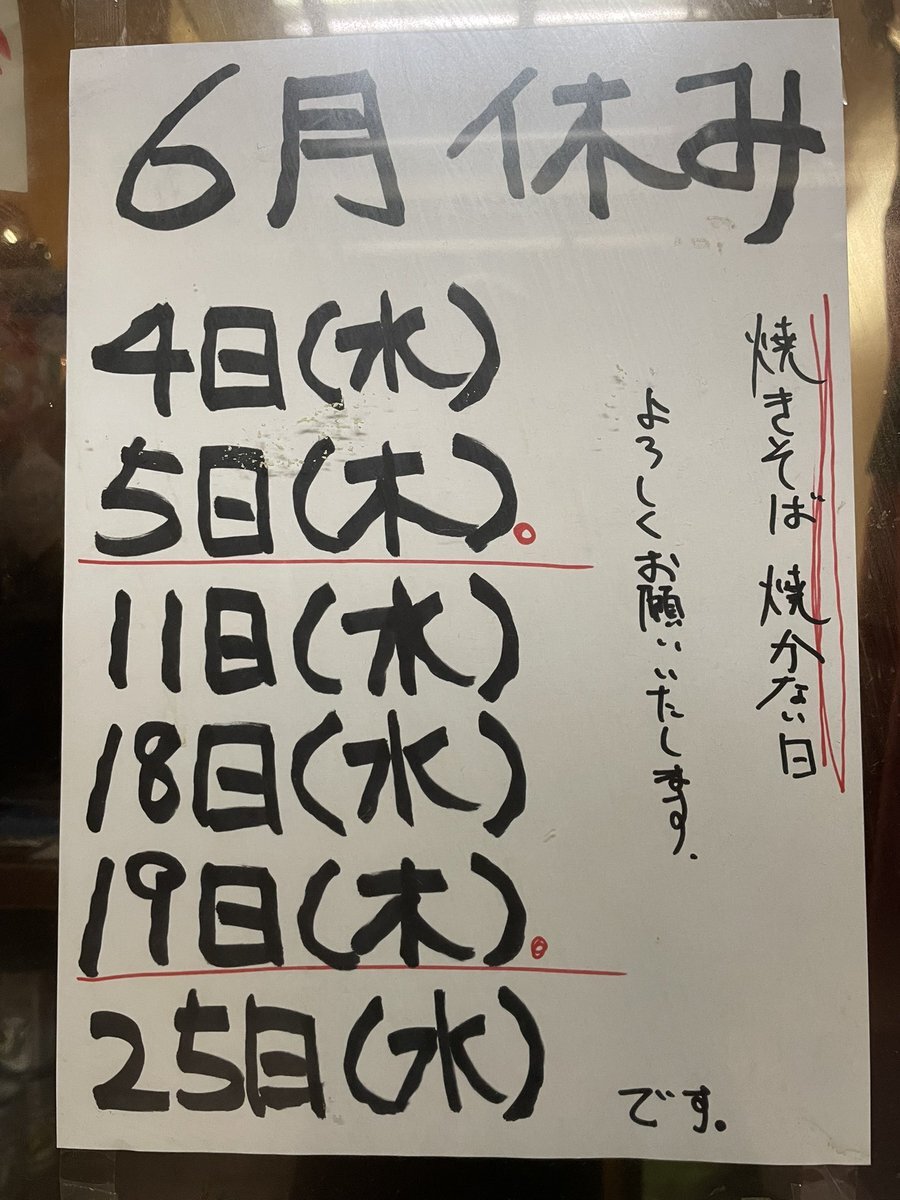 6月休み
4日(水)
5日(木)。
11日(水)
18日(水)
19日(木)。
25日(水)
です。
焼きそば 焼かない日
よろしくお願いいたします.